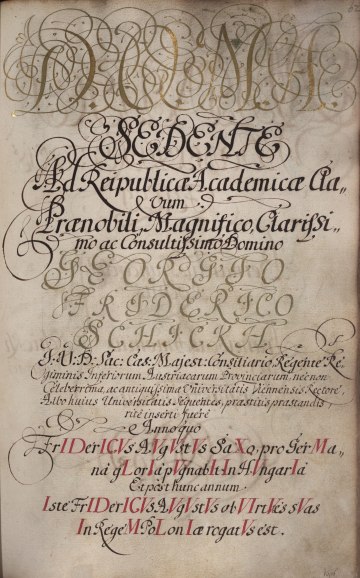 D. O. M. A.
SEDENTE
Ad Reipublicæ Academicæ Cla-
vum
Prænobili, Magnifico, Clarissi-
mo ac Consultissimo Domino
GEORGIO
FRIDERICO
SCHICKH
J: U: D: Sac: Cæs: Majest: Consiliario Regente Re-
giminis Inferiorum Austriacarum Provinciarum, nec non
Celeberrimæ, ac antiquissimæ Universitatis Viennensis Rectore,
Albo hujus Universitatis sequentes, præstitis præstandis
ritè inserti fuêre
Anno quo
FrIDerICVs AVgVstVs SaXo, pro GerMa-
nâ gLorIâ pVgnabIt In HVngarIa
Et post hunc annum
Iste FrIDerICVs AVgVstVs ob VIrtVes sVas
In RegeM PoLonIæ rogatVs est.